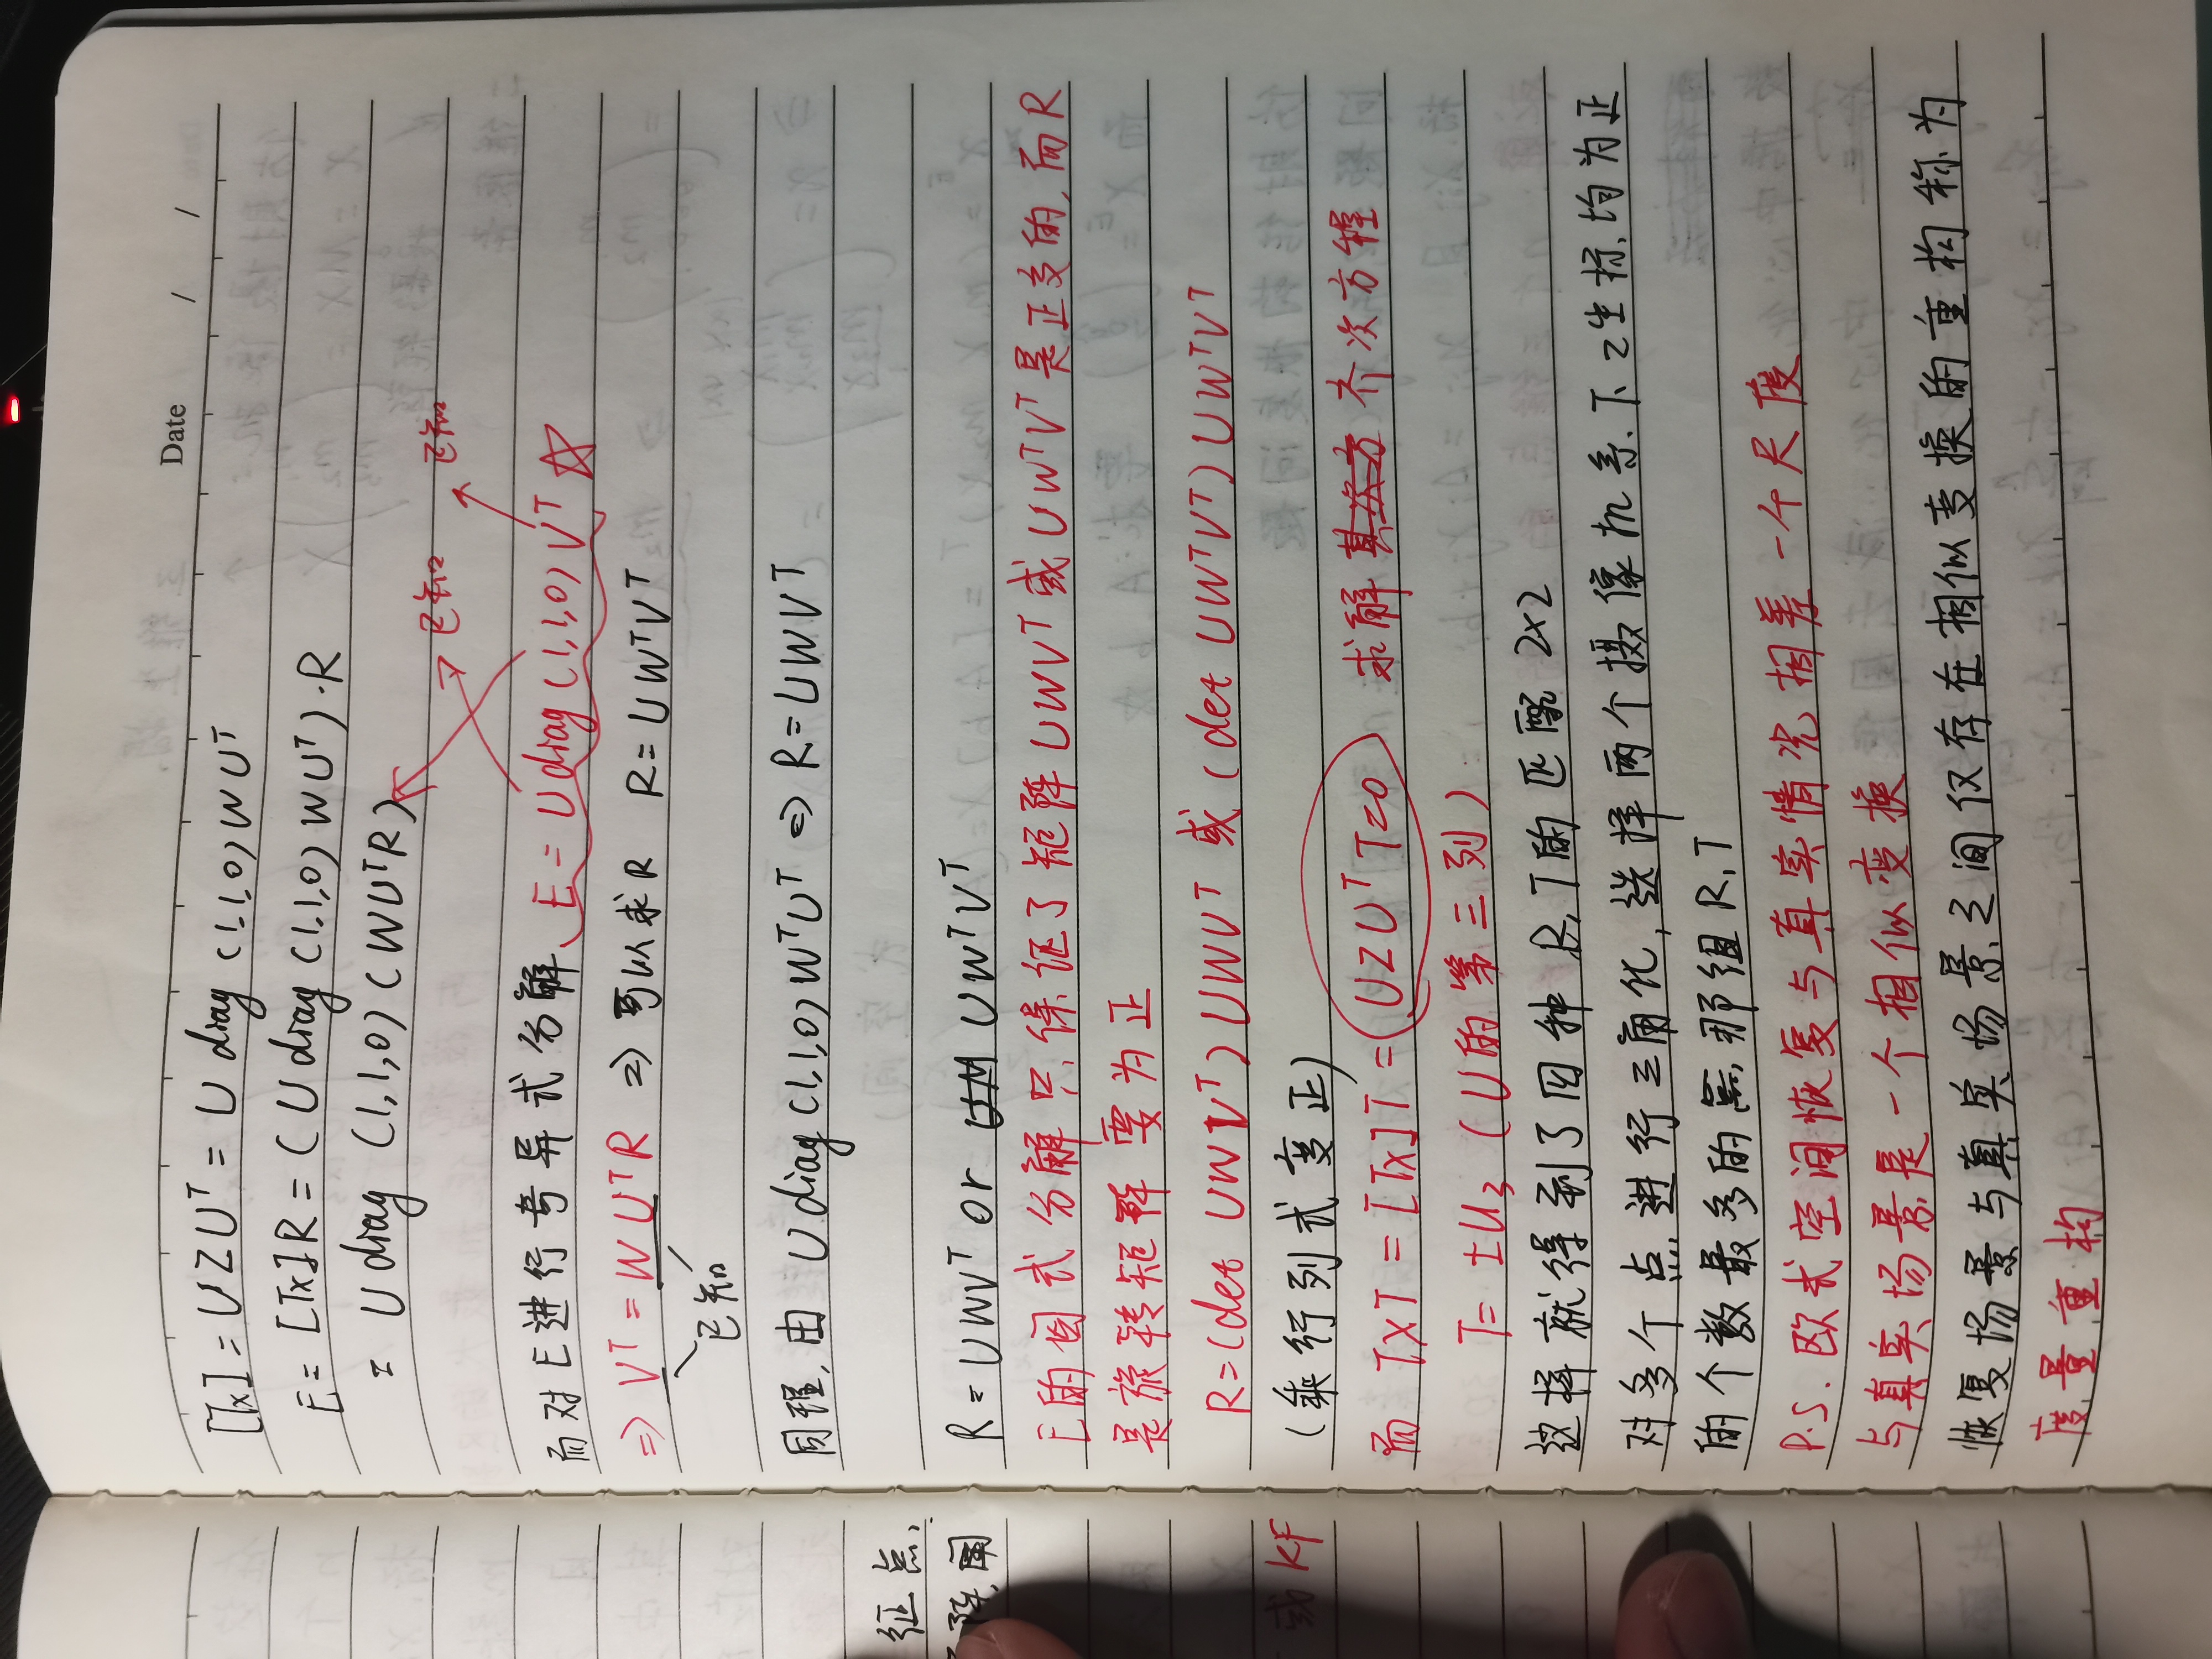 Date / /
[T×] = UZUᵀ = U diag (1,1,0) W Uᵀ
E = [T×]R = (U diag (1,1,0) W Uᵀ)·R
= U diag (1,1,0) (W UᵀR)
已知 已知
而对E进行奇异式分解、E = U diag (1,1,0) Vᵀ ☆
⇒ Vᵀ = W UᵀR ⇒ 可以求R R = U Wᵀ Vᵀ
已知
同理,由 U diag (1,1,0) Wᵀ Uᵀ ⇒ R = U W Vᵀ
R = U W Vᵀ or U Wᵀ Vᵀ
E的因式分解只保证了矩阵 U W Vᵀ 或 U Wᵀ Vᵀ 是正交的,而R
是旋转矩阵要为正
R = (det U W Vᵀ) U W Vᵀ 或 (det U Wᵀ Vᵀ) U Wᵀ Vᵀ
(乘行列式变正)
而 T×T = [T×]T = (UZUᵀT=0 求解齐次方程
T = ±U₃ (U的第三列)
这样就得到了四种 R,T的匹配 2×2
对多个点进行三角化,选择两个摄像机系下Z坐标均为正
的个数最多的那组 R,T
P.S. 欧式空间恢复与真实情况相差一个尺度
与真实场景是一个相似变换
恢复场景与真实场景之间仅存在相似变换的重构称为
度量重构
征点,
阵,用
或 KF